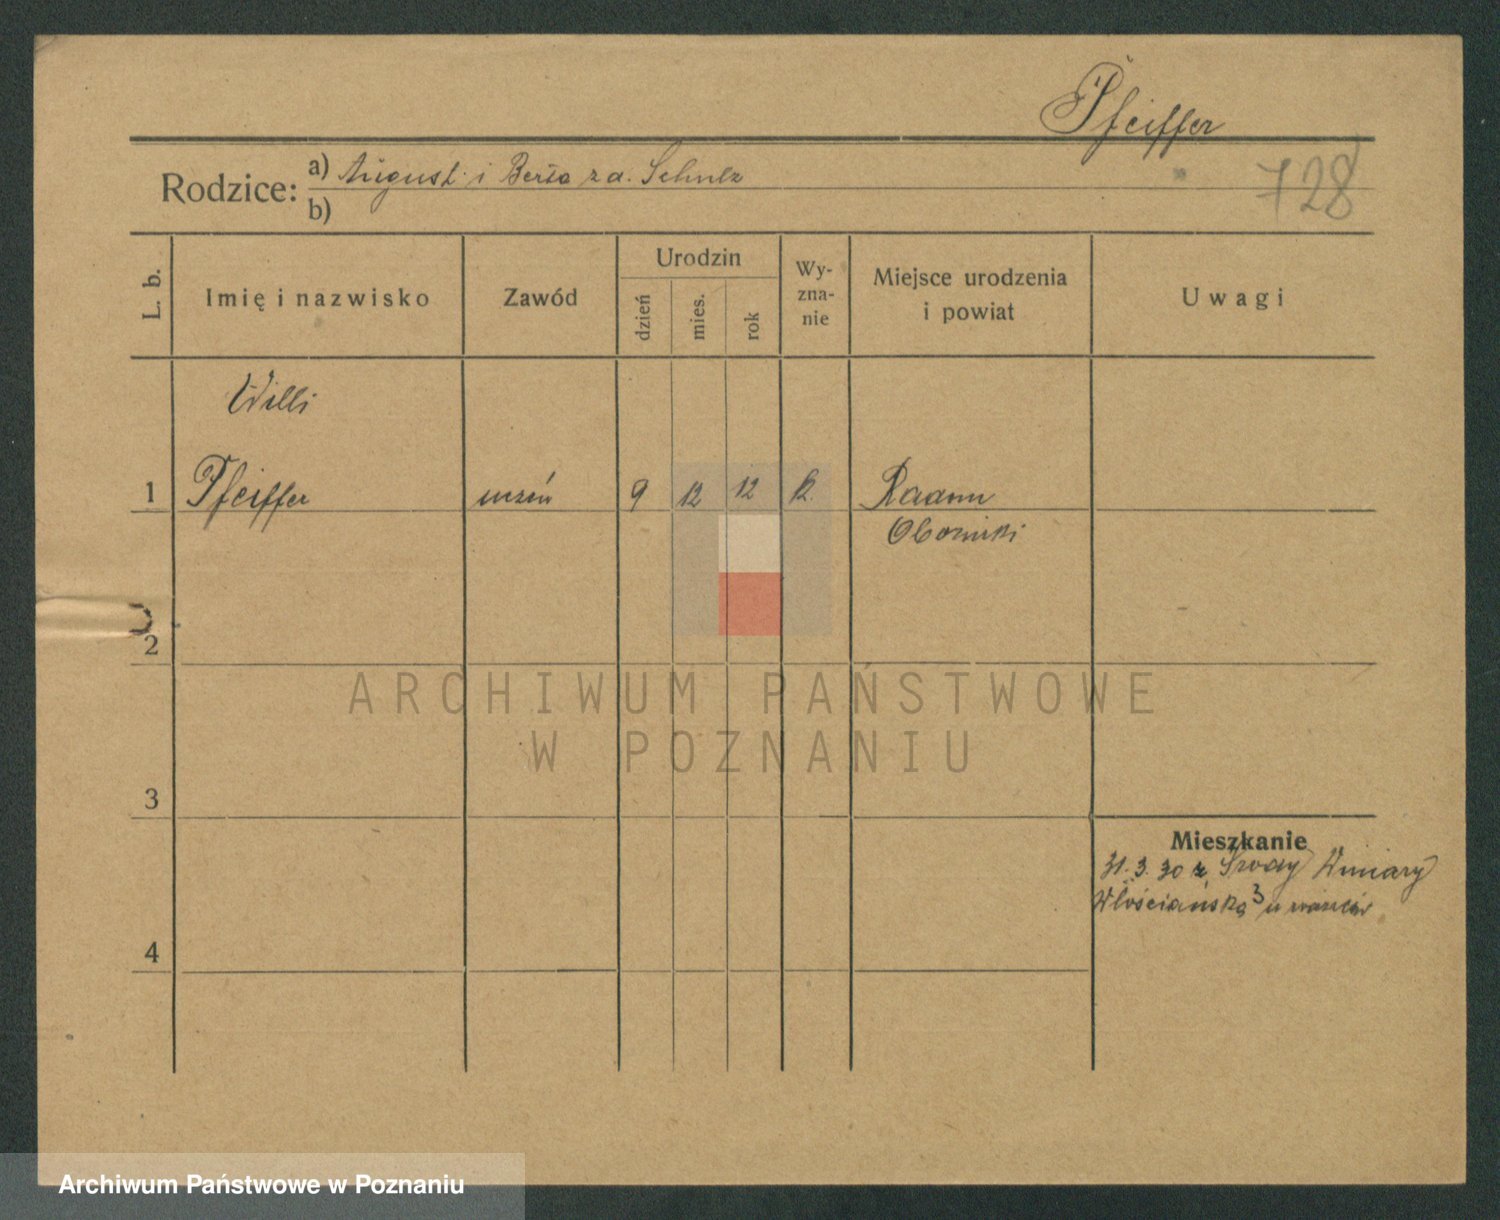 Pfeiffer
728
Rodzice: a) August i Berta z d. Schulz
b)
L. b.
Imię i nazwisko
Zawód
Urodzin
dzień
mies.
rok
Wy-
zna-
nie
Miejsce urodzenia
i powiat
Uwagi
Willi
1 Pfeiffer uczeń 9 12 12
Oborniki
2
3
4
Mieszkanie
31.3.30 z Środy Winiary
Włościańska 3 u
ARCHIWUM PAŃSTWOWE
W POZNANIU
Archiwum Państwowe w Poznaniu